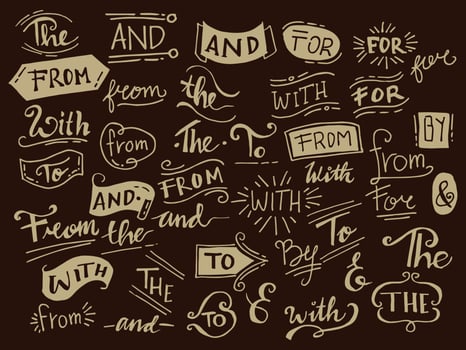 The
AND
AND
FOR
FOR
for
FROM
from
the
WITH
FOR
With
from
The
To
FROM
BY
To
With
from
AND
FROM
WITH
For
&
From the
and
By
To
The
WITH
THE
TO
&
THE
from
and
To
&
with